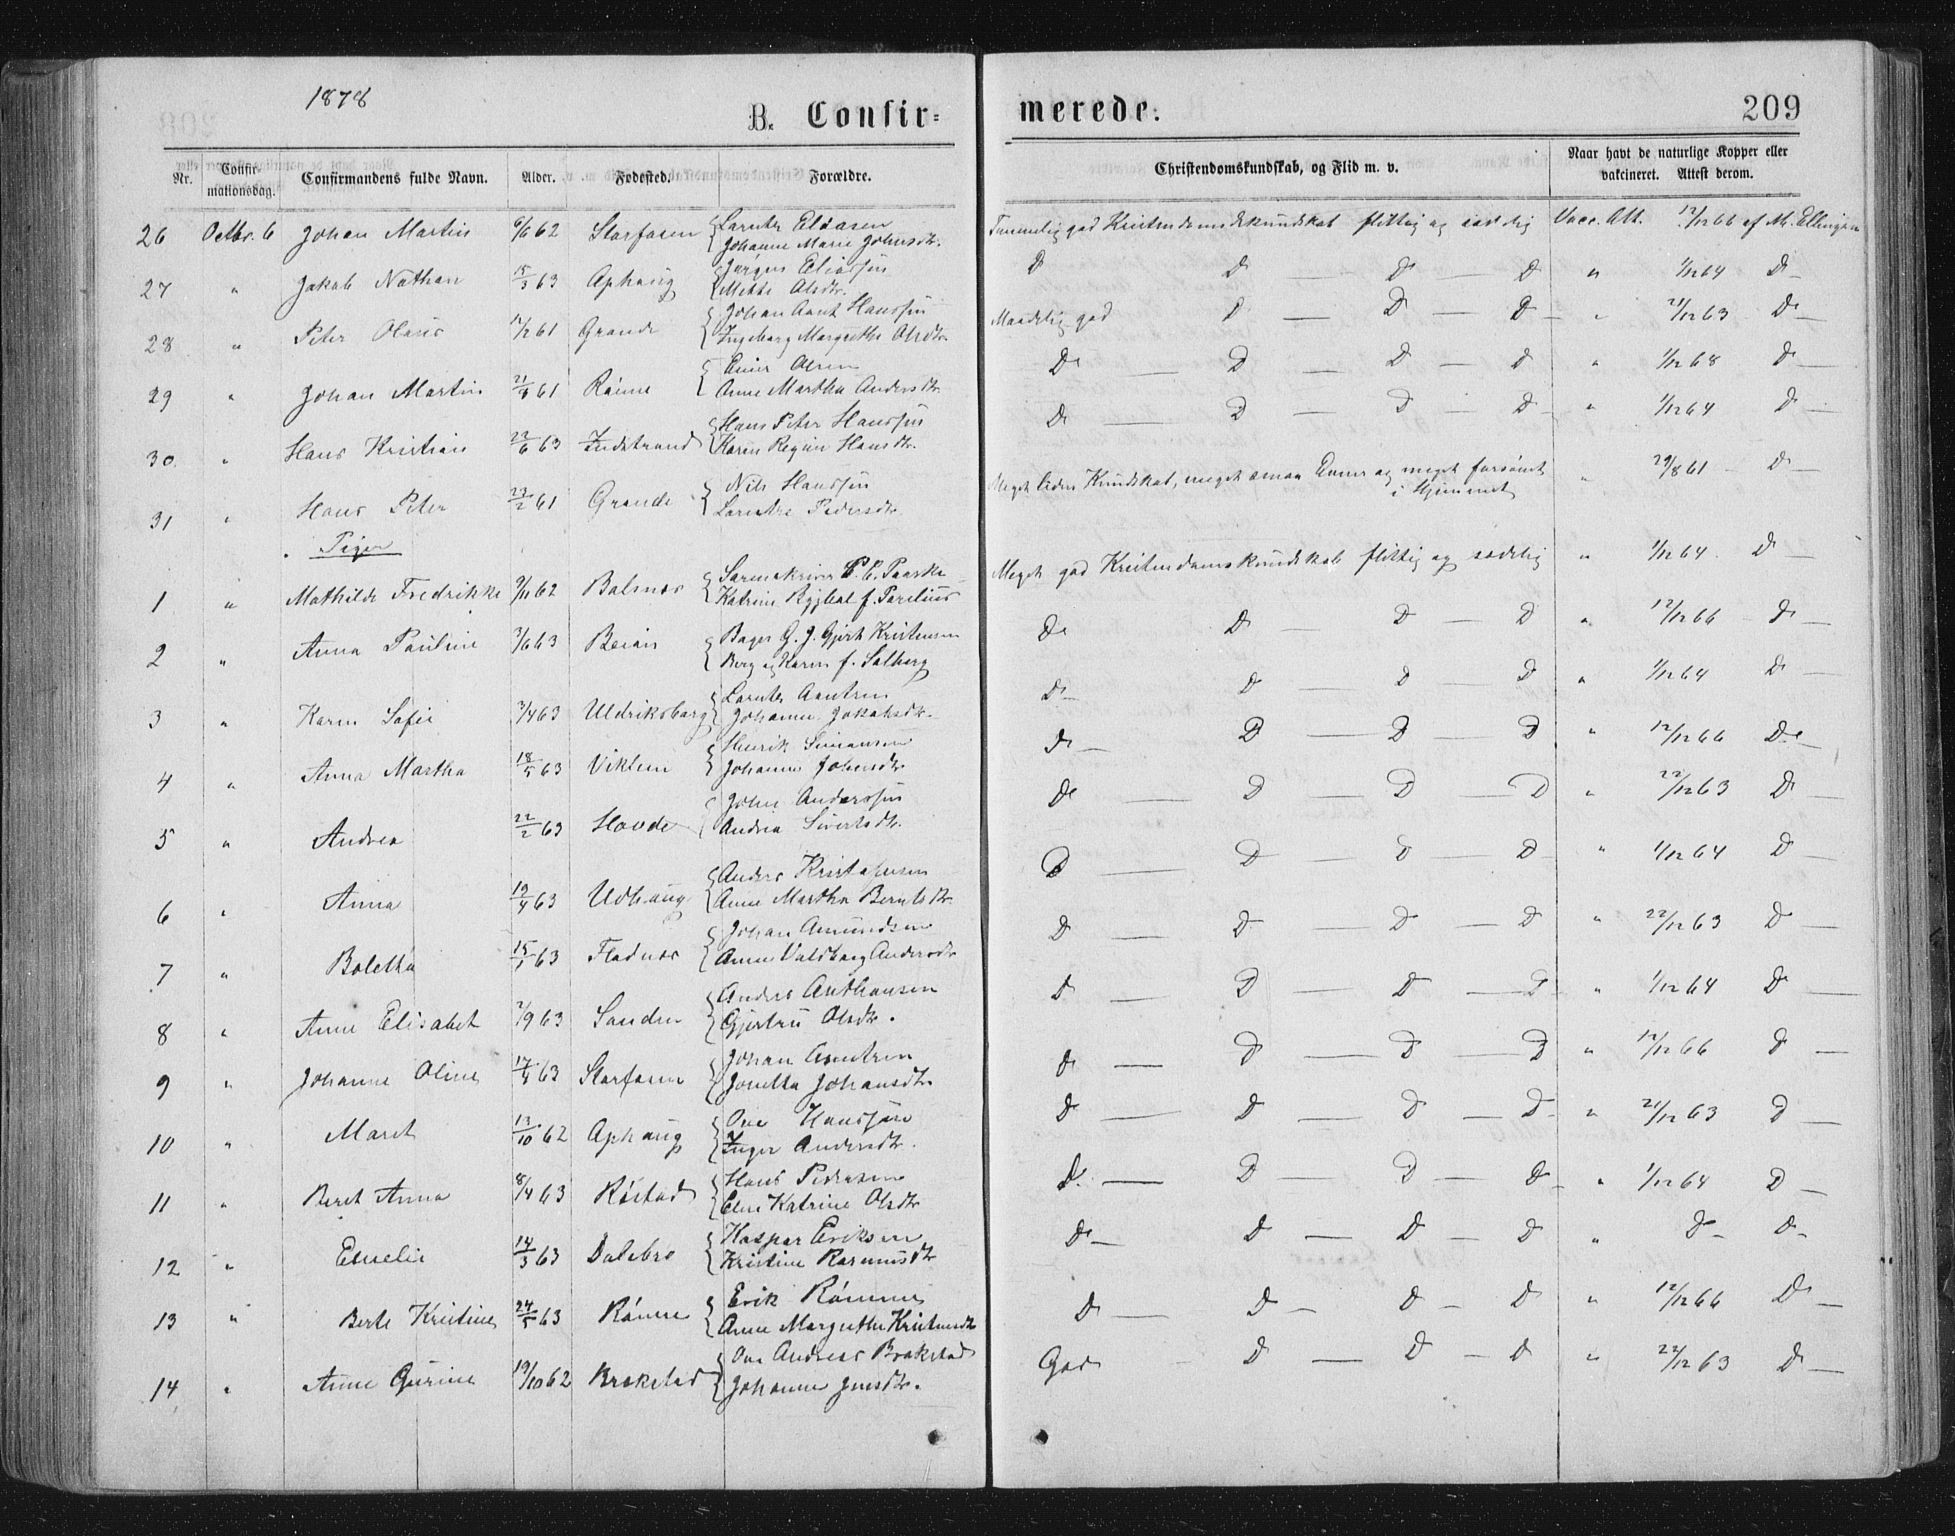 1878
B. Confir=
merede.
209
Nr.
Confir-
mationsdag.
Confirmandens fulde Navn.
Alder.
Fødested.
Forældre.
Christendomskundskab, og Flid m. v.
Naar havt de naturlige Kopper eller
vakcineret. Attest derom.
26 Octbr. 6 Johan Martin 6/6 62 Storfosen Larentz Eliasen
Johanne Marie Johnsdtr.
Temmelig god Kristendomskundskab flittig og sædelig Vacc. Att. 12/12 66 af M. Ellingsen
27 " Jakob Nathan 15/3 63 Ophaug Jørgen Eliassen
Mette Olsdtr.
D D — D — D " 1/12 64 D —
28 " Peter Olaus 12/12 61 Grande Johan Arnt Hanssen
Ingeborg Margrethe Olsdtr.
Maadelig god D — D — D — " 21/12 63 Do —
29 " Johan Martin 21/9 61 Rønne Einer Olsen
Anne Martha Andersdtr
Do — D — D — D " 1/12 68 D —
30 " Hans Kristian 22/6 63 Indstrand Hans Peter Hanssen
Karen Regine Hansdtr.
Do — D — D — D — " 1/12 64 D —
31 " Hans Peter 23/2 61 Grande Nils Hanssen
Larentze Pedersdtr.
Meget liden Kundskab, meget smaa Evner og meget forsømt
i Hjemmet " 29/8 61 — D —
Piger
1 " Mathilde Fredrikke 9/11 62 Balsnes P. C. Paaske
Katrine Bygbal f. Parelius
Meget god Kristendomskundskab flittig og sædelig " 1/12 64 D —
2 " Anna Pauline 3/6 63 Beian Bager G. J. Gjert Kristensen
Berg og Karen f. Solberg
Do D — D — D " 12/12 66 D —
3 " Karen Sofie 3/4 63 Uldriksborg Larentz Arntzen
Johanna Jakobsdtr.
Do — D — D — D " 1/12 64 D —
4 " Anna Martha 18/5 63 Viklem Henrik Simonsen
Johanna Johnsdtr.
Do — D — D — D " 12/12 66 Do —
5 " Andrea 22/2 63 Hovde John Anderssen
Andrea Sivertsdtr.
Do — D — D — D " 22/12 63 D —
6 " Anna 19/4 63 Udhaug Anders Kristofersen
Anne Martha Berntsdtr.
D — D — D — D " 1/12 64 D —
7 " Boletha 15/1 63 Flatnes Johan Amundsen
Anne Valborg Andersdtr
D — D — D — D " 22/12 63 D —
8 " Anne Elisabet 2/9 63 Sanden Anders Anthonsen
Gjertru Olsdtr.
D — D — D — D " 1/12 64 D —
9 " Johanne Oline 17/4 63 Storfosen Johan Arntzen
Jonetta Johansdtr.
D — D — D — D " 12/12 66 D —
10 " Maret 13/10 62 Ophaug Ove Hanssen
Inger Andersdtr.
D — D — D — D — " 21/12 63 D —
11 " Beret Anna 8/4 63 Røstad Hans Pedersen
Elen Katrine Olsdtr
D. — D — D — D — " 1/12 64 D —
12 " Emelie 14/3 63 Dalebro Kaspar Eriksen
Kristine Rasmusdtr
Do — D — D — D " D — D —
13 " Berte Kristine 24/5 63 Rønne Erik Rønne
Anne Margrethe Kristensdtr
D — D — D — D " 12/12 66 D —
14 " Anne Gurine 19/10 62 Brækstad Ove Andreas Brækstad
Johanne Jensdtr.
God D — D — D " 22/12 63 D —